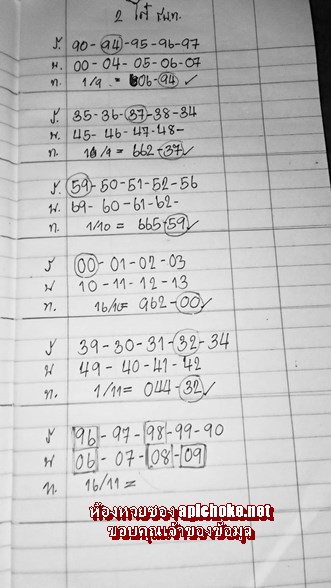 2 โต๊ ชนท.
ร. 90-94-95-96-97
ม. 00-04-05-06-07
ท. 1/9 = 606-94 ✓
ร. 35-36-37-38-34
ม. 45-46-47-48-
ท. 16/9 = 662-37 ✓
ร. 59-50-51-52-56
ม. 69-60-61-62-
ท. 1/10 = 665-59 ✓
ร 00-01-02-03
ม 10-11-12-13
ท. 16/10= 962-00 ✓
ร 39-30-31-32-34
ม 49-40-41-42
ท. 1/11= 044-32 ✓
ร 96-97-98-99-90
ม 06-07-08-09
ท. 16/11 =
ห้องหวยซอง aplchoke.net
ขอบคุณเจ้าของข้อมูล